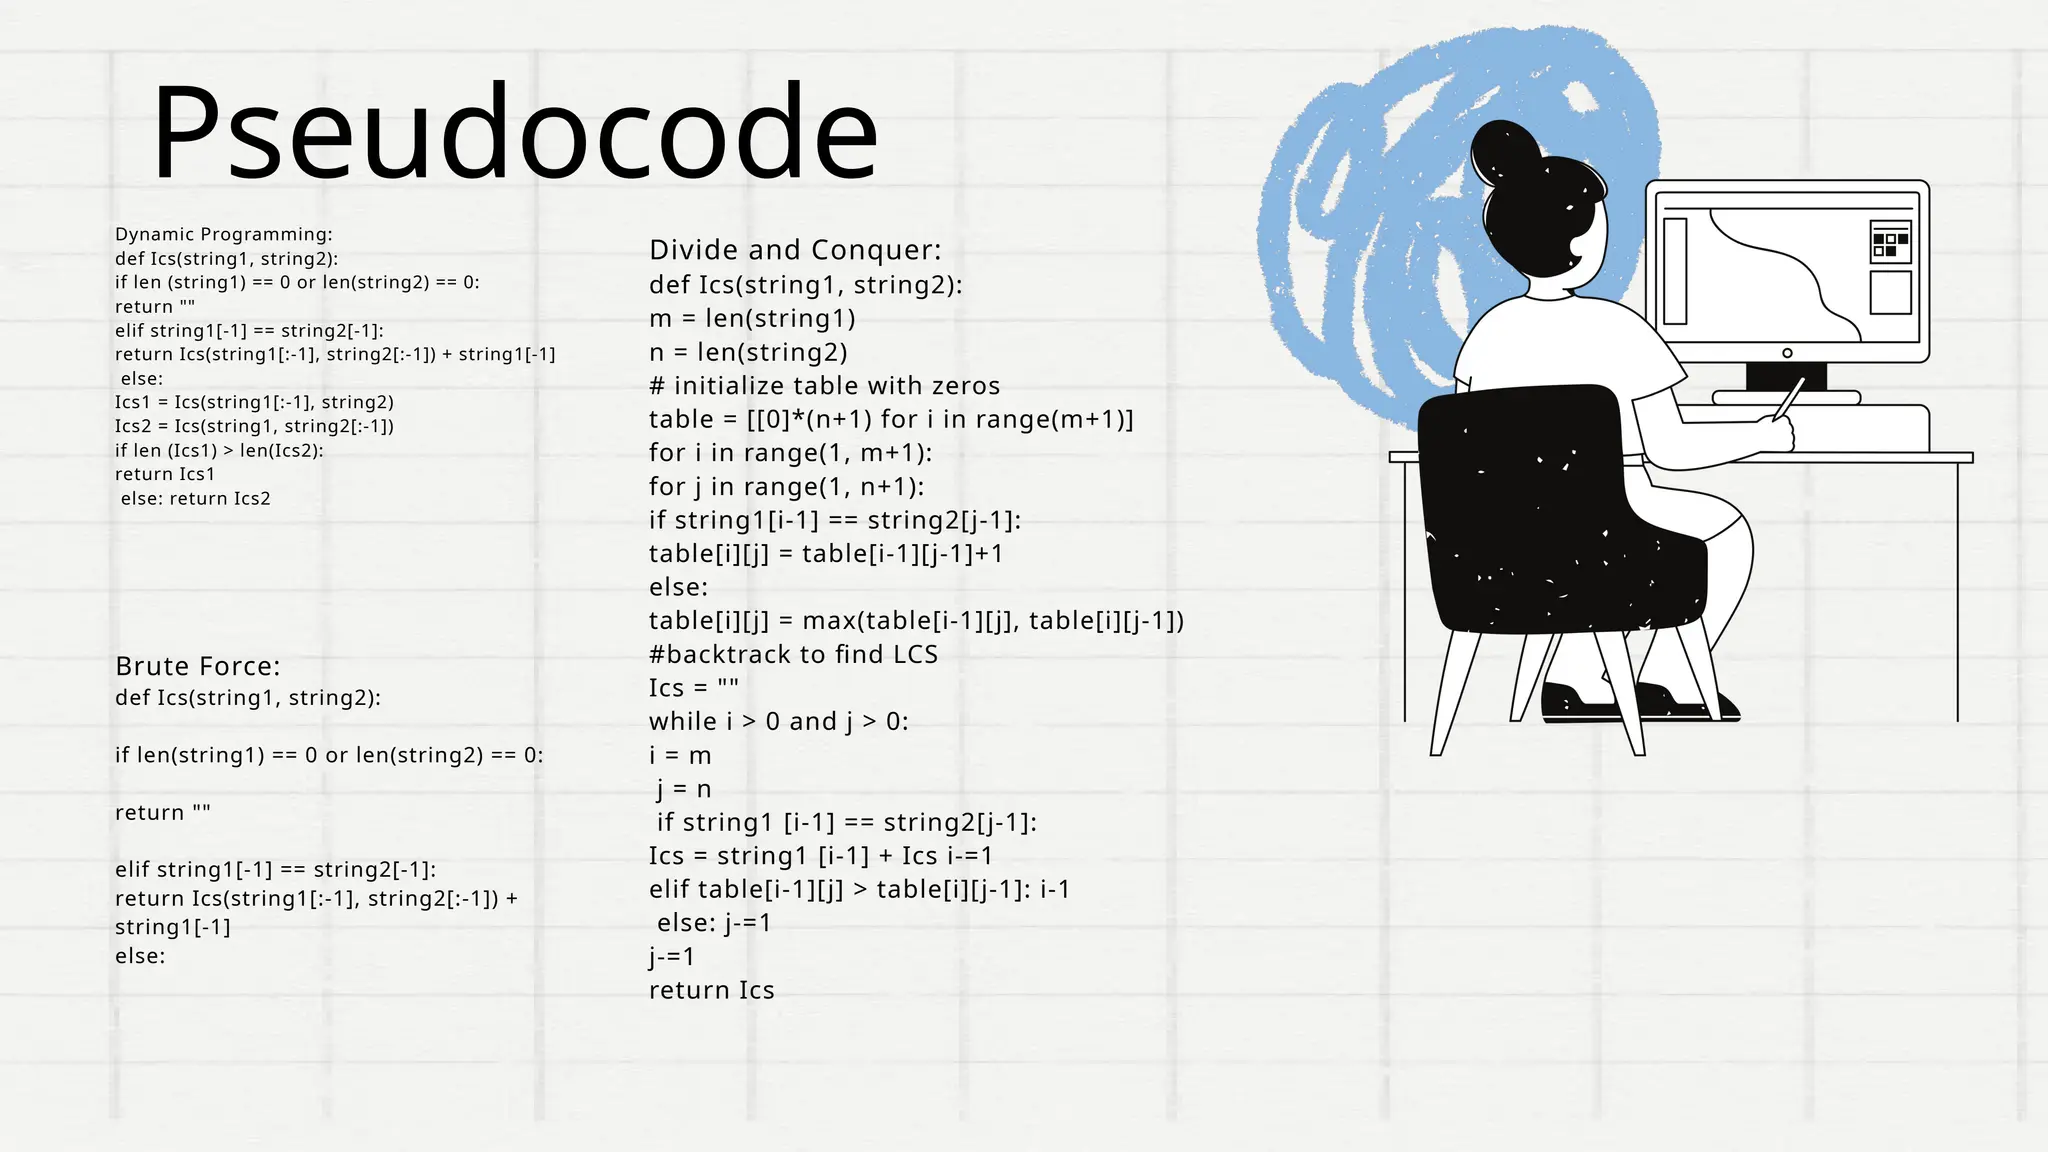 Pseudocode
Dynamic Programming:
def Ics(string1, string2):
if len (string1) == 0 or len(string2) == 0:
return ""
elif string1[-1] == string2[-1]:
return Ics(string1[:-1], string2[:-1]) + string1[-1]
else:
Ics1 = Ics(string1[:-1], string2)
Ics2 = Ics(string1, string2[:-1])
if len (Ics1) > len(Ics2):
return Ics1
else: return Ics2
Brute Force:
def Ics(string1, string2):
if len(string1) == 0 or len(string2) == 0:
return ""
elif string1[-1] == string2[-1]:
return Ics(string1[:-1], string2[:-1]) +
string1[-1]
else:
Divide and Conquer:
def Ics(string1, string2):
m = len(string1)
n = len(string2)
# initialize table with zeros
table = [[0]*(n+1) for i in range(m+1)]
for i in range(1, m+1):
for j in range(1, n+1):
if string1[i-1] == string2[j-1]:
table[i][j] = table[i-1][j-1]+1
else:
table[i][j] = max(table[i-1][j], table[i][j-1])
#backtrack to find LCS
Ics = ""
while i > 0 and j > 0:
i = m
j = n
if string1 [i-1] == string2[j-1]:
Ics = string1 [i-1] + Ics i-=1
elif table[i-1][j] > table[i][j-1]: i-1
else: j-=1
j-=1
return Ics